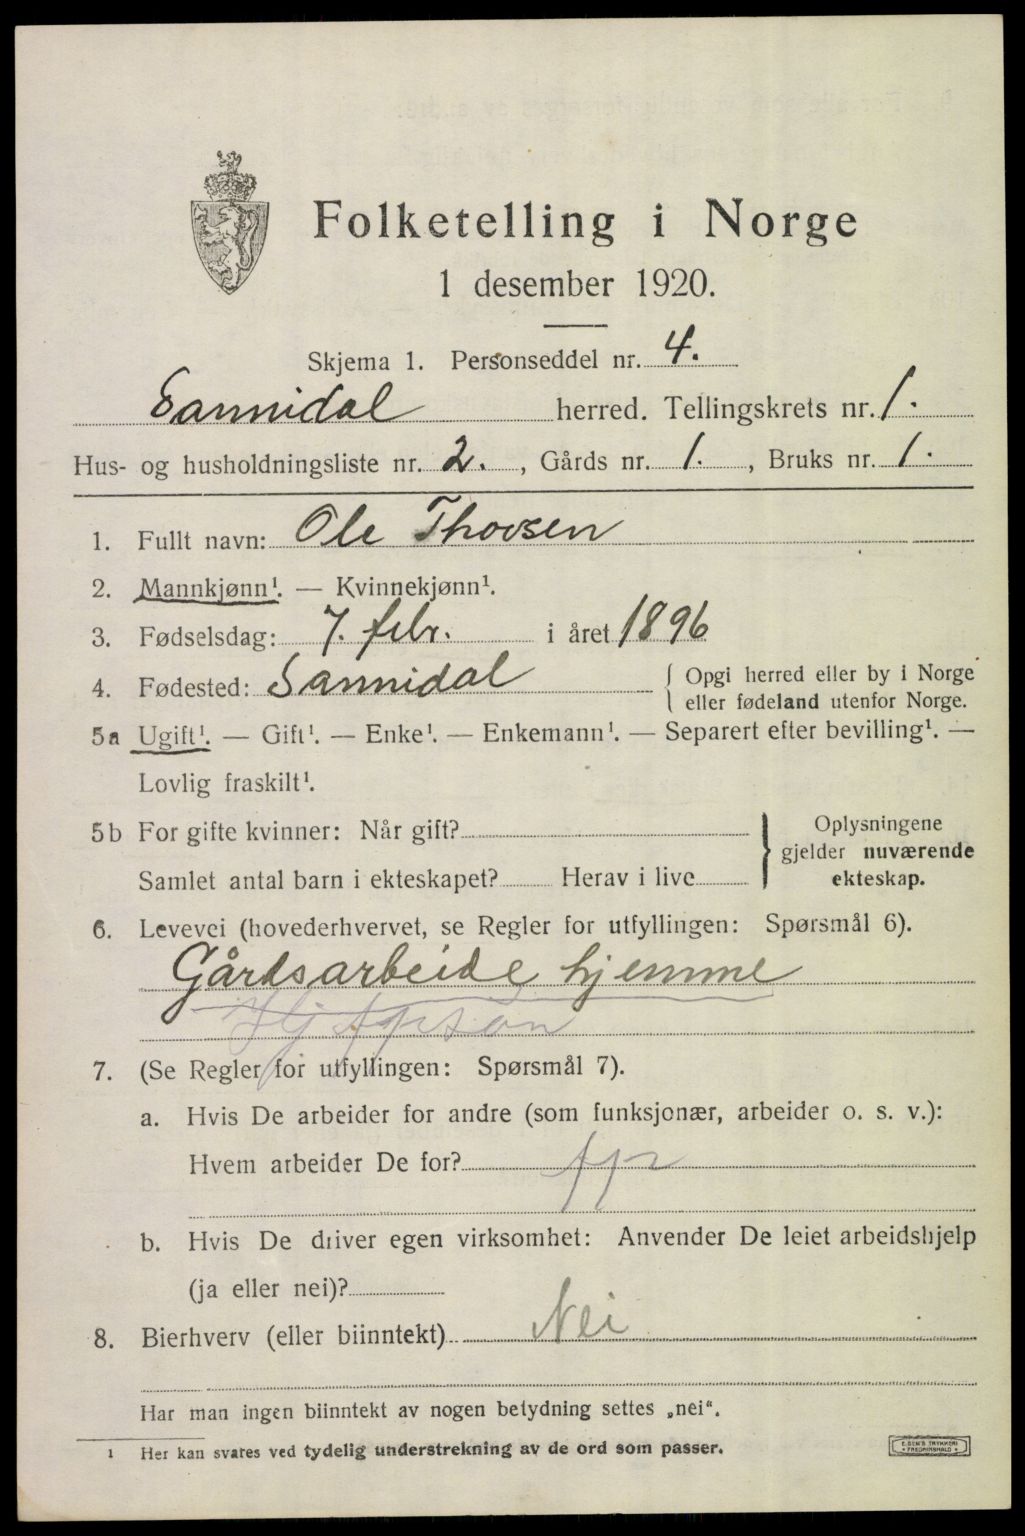 Folketelling i Norge
1 desember 1920.
Skjema 1. Personseddel nr. 4.
Sannidal herred. Tellingskrets nr. 1.
Hus- og husholdningsliste nr. 2. , Gårds nr. 1. , Bruks nr. 1.
1. Fullt navn: Ole Thovsen
2. Mannkjønn¹. — Kvinnekjønn¹.
3. Fødselsdag: 7. febr. i året 1896
4. Fødested: Sannidal { Opgi herred eller by i Norge
eller fødeland utenfor Norge.
5a Ugift¹. — Gift¹. — Enke¹. — Enkemann¹. — Separert efter bevilling¹. —
Lovlig fraskilt¹.
5b For gifte kvinner: Når gift? } Oplysningene
gjelder nuværende
Samlet antal barn i ekteskapet? Herav i live ekteskap.
6. Levevei (hovederhvervet, se Regler for utfyllingen: Spørsmål 6).
Gårdsarbeide hjemme
7. (Se Regler for utfyllingen: Spørsmål 7).
a. Hvis De arbeider for andre (som funksjonær, arbeider o. s. v.):
Hvem arbeider De for?
b. Hvis De driver egen virksomhet: Anvender De leiet arbeidshjelp
(ja eller nei)?
8. Bierhverv (eller biinntekt) Nei
Har man ingen biinntekt av nogen betydning settes „nei“.
1 Her kan svares ved tydelig understrekning av de ord som passer.